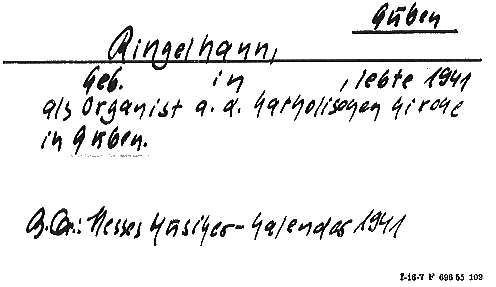 Guben
Ringelhann,
Geb. in , lebte 1941
als Organist a. d. Katholischen Kirche
in Guben.
Hesses Musiker-Kalender 1941
I-16-7 F 696 55 109